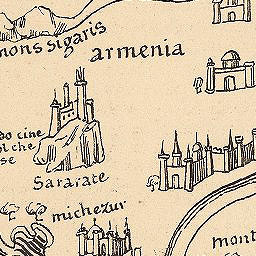 mons sigaris
armenia
do cine
ol che
se
Sararate
michezur
mont